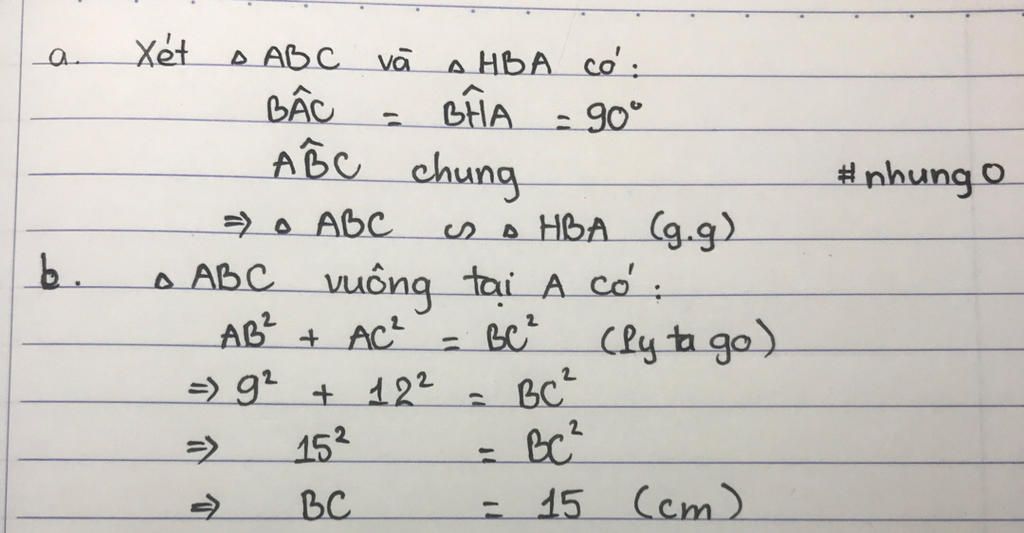 a. Xét ▵ ABC và ▵ HBA có:
BÂC = BĤA = 90°
AB̂C chung
#nhung0
⇒ ▵ ABC ∽ ▵ HBA (g.g)
b. ▵ ABC vuông tại A có:
AB² + AC² = BC² (Py ta go)
⇒ 9² + 12² = BC²
⇒ 15² = BC²
⇒ BC = 15 (cm)